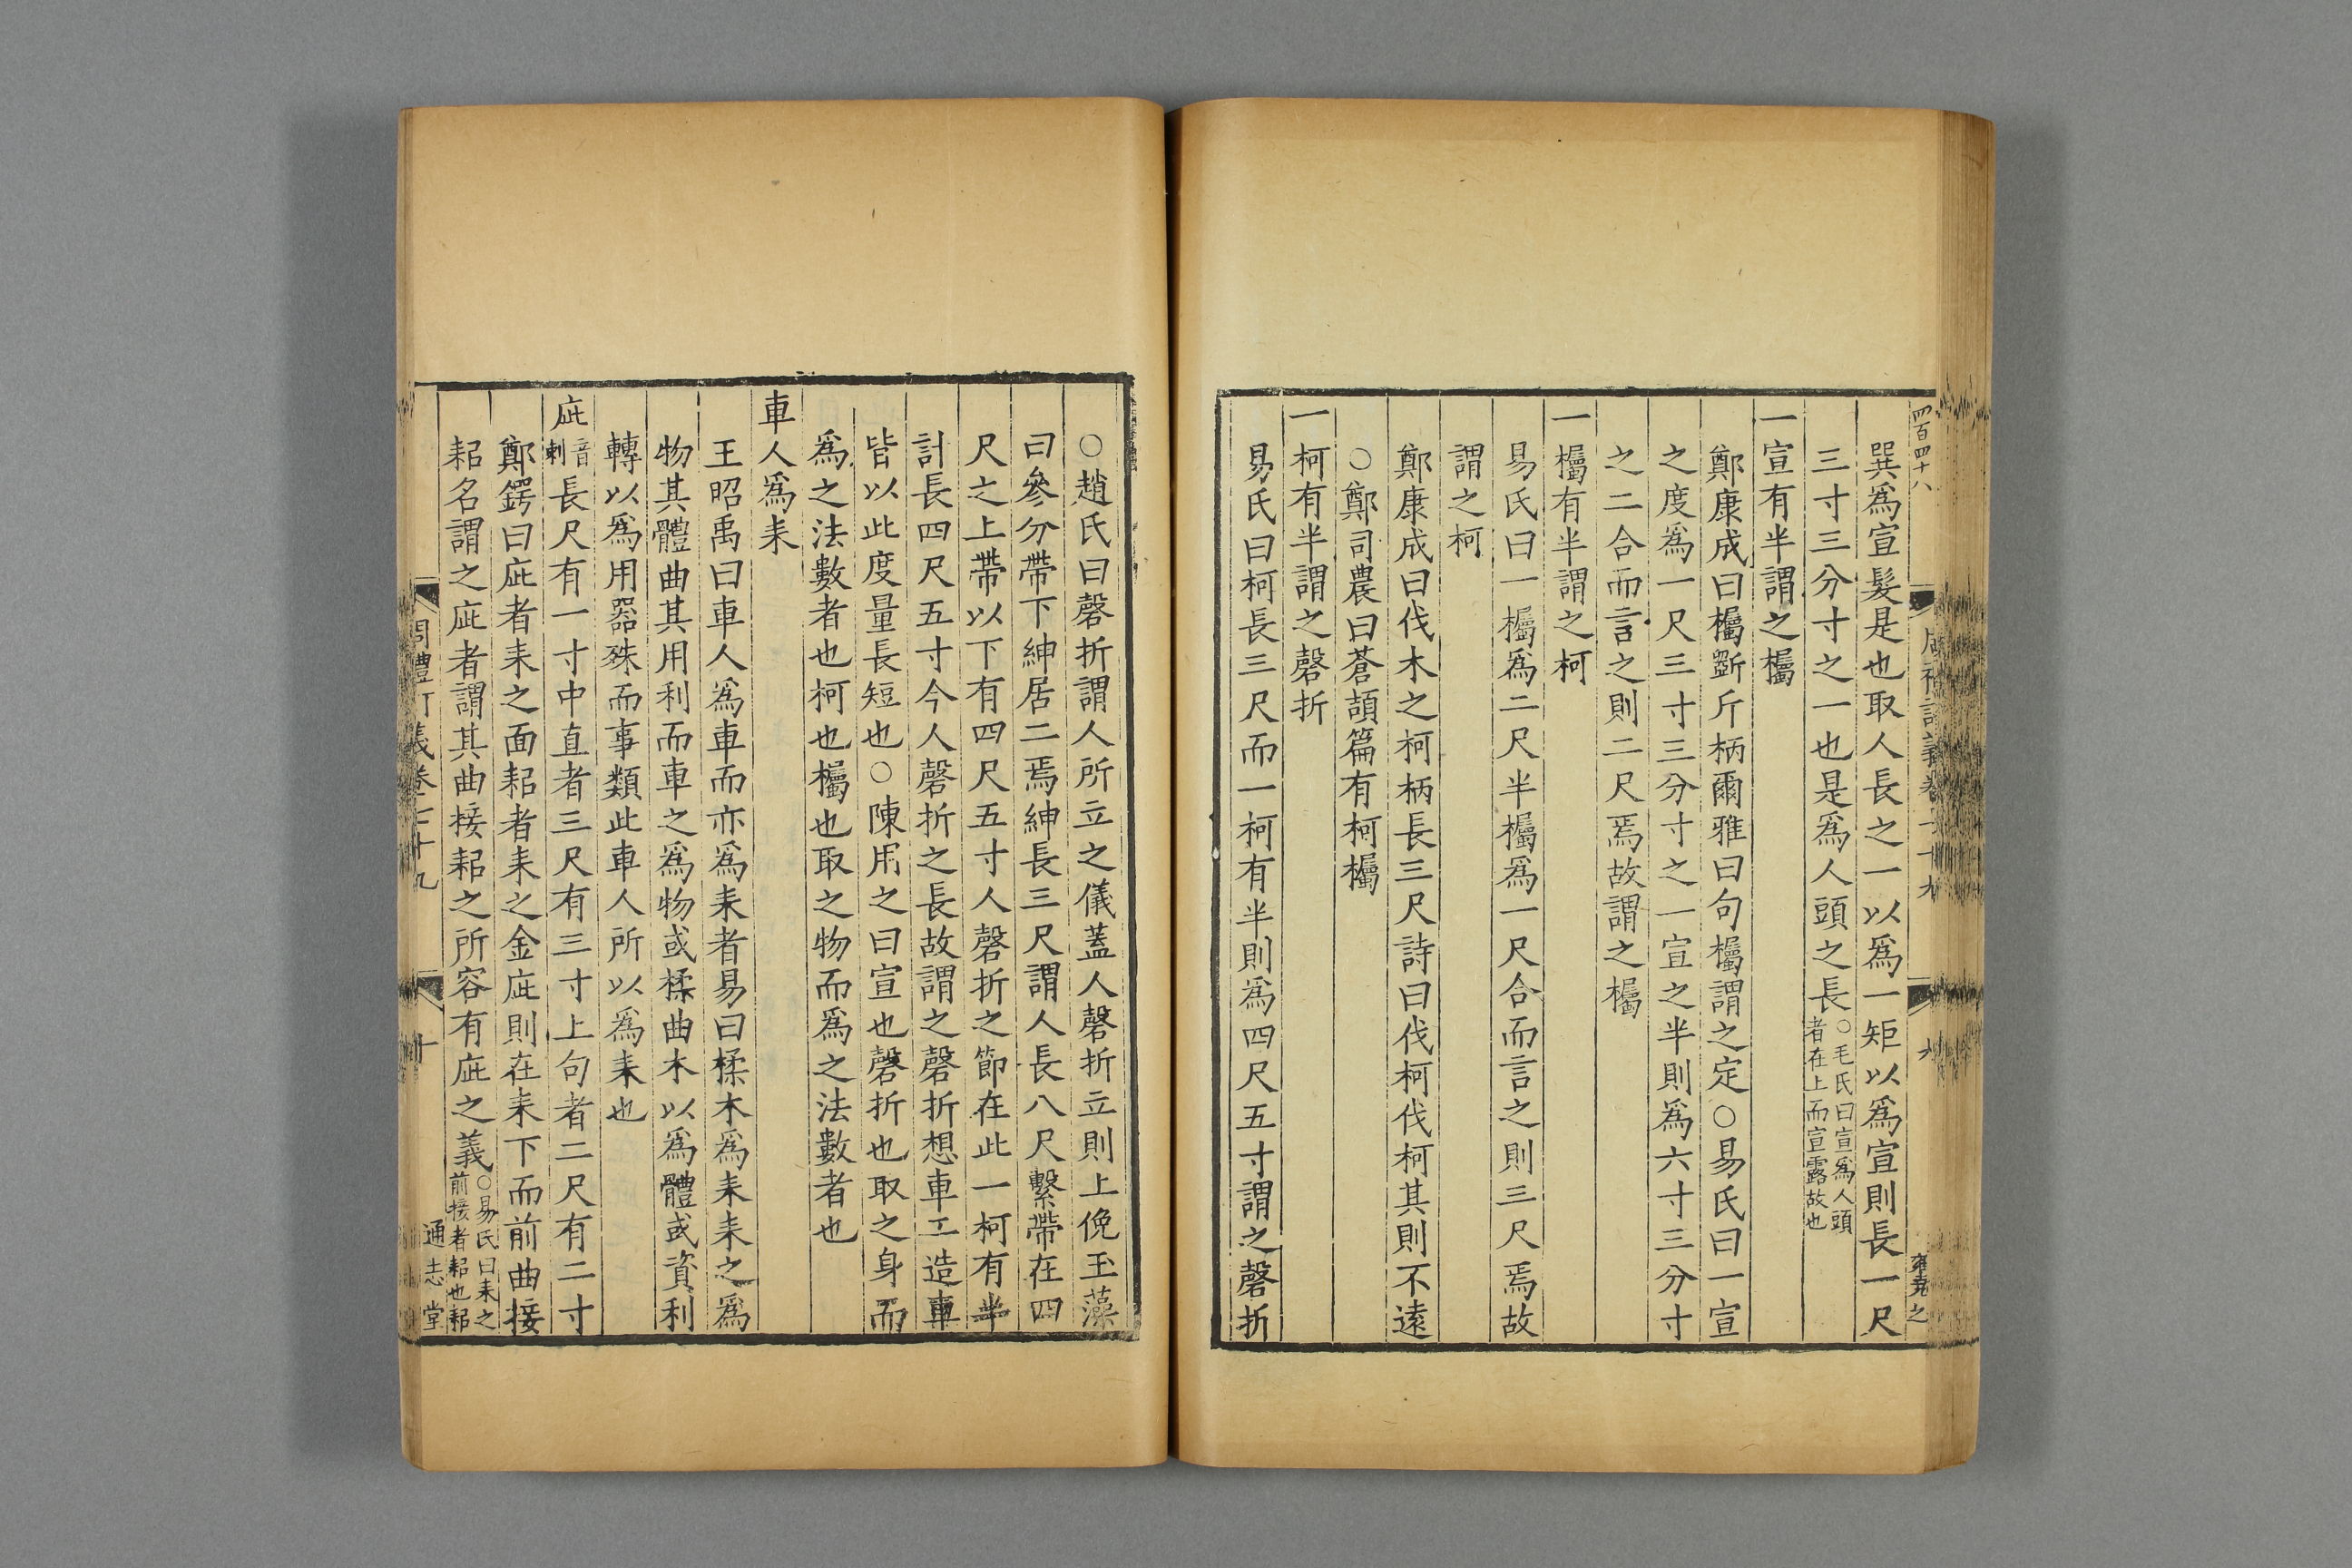 四百四十八
巽爲宣髮是也取人長之一以爲一矩以爲宣則長一尺
三寸三分寸之一也是爲人頭之長○毛氏曰宣爲人頭
者在上而宣露故也
一宣有半謂之欘
鄭康成曰欘斵斤柄爾雅曰句欘謂之定○易氏曰一宣
之度爲一尺三寸三分寸之一宣之半則爲六寸三分寸
之二合而言之則二尺焉故謂之欘
一欘有半謂之柯
易氏曰一欘爲二尺半欘爲一尺合而言之則三尺焉故
謂之柯
鄭康成曰伐木之柯柄長三尺詩曰伐柯伐柯其則不遠
○鄭司農曰蒼頡篇有柯欘
一柯有半謂之磬折
易氏曰柯長三尺而一柯有半則爲四尺五寸謂之磬折
○趙氏曰磬折謂人所立之儀蓋人磬折立則上俛玉藻
曰參分帶下紳居二焉紳長三尺謂人長八尺繫帶在四
尺之上帶以下有四尺五寸人磬折之節在此一柯有半
計長四尺五寸今人磬折之長故謂之磬折想車工造車
皆以此度量長短也○陳用之曰宣也磬折也取之身而
爲之法數者也柯也欘也取之物而爲之法數者也
車人爲耒
王昭禹曰車人爲車而亦爲耒者易曰揉木爲耒耒之爲
物其體曲其用利而車之爲物或揉曲木以爲體或資利
轉以爲用器殊而事類此車人所以爲耒也
庛音刺長尺有一寸中直者三尺有三寸上句者二尺有二寸
鄭鍔曰庛者耒之面耜者耒之金庛則在耒下而前曲接
耜名謂之庛者謂其曲接耜之所容有庛之義○易氏曰耒之
前接者耜也耜
周禮訂義卷七十九
十
通志堂